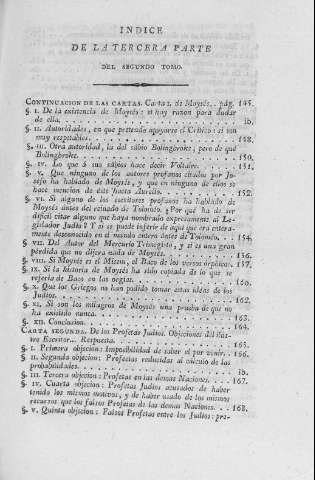 INDICE
DE LA TERCERA PARTE
DEL SEGUNDO TOMO.
CONTINUACION DE LAS CARTAS. Carta I. de Moysés. . pág. 145.
§. I. De la existencia de Moysés: si hay razon para dudar
de ella. . . . . . . . . . . . . . . . . . . . . . . . Ib.
§. II. Autoridades, en que pretende apoyarse el Crítico: si son
muy respetables. . . . . . . . . . . . . . . . . . . . 148.
§. III. Otra autoridad, la del sábio Bolingbroke; pero de qué
Bolingbroke. . . . . . . . . . . . . . . . . . . . . . 150.
§. IV. Lo que á sus sábios hace decir Voltaire. . . . . 151.
§. V. Que ninguno de los autores profanos citados por Jo-
sefo ha hablado de Moysés, y que en ninguno de ellos se
hace mencion de éste hasta Aurelio. . . . . . . . . . . 152.
§. VI. Si alguno de los escritores profanos ha hablado de
Moysés antes del reinado de Tolomèo. ¿Por qué ha de ser
dificil citar alguno que haya nombrado expresamente al Le-
gislador Judio? Y si se puede inferir de aquí que era entera-
mente desconocido en el mundo entero ántes de Tolomèo. . 154.
§. VII. Del Autor del Mercurio Trimegisto, y si es una gran
pérdida que no dijera nada de Moysés. . . . . . . . . . 156.
§. VIII. Si Moysés es el Misem, ó Baco de los versos orphicos. . 157.
§. IX. Si la historia de Moysés ha sido copiada de lo que se
refería de Baco en las orgias. . . . . . . . . . . . .
§. X. Que los Griegos no han podido tomar estas ideas de los
Judios. . . . . . . . . . . . . . . . . . . . . . . . 162.
§. XI. Si son los milagros de Moysés una prueba de que no
ha existido nunca. . . . . . . . . . . . . . . . . . . 163.
§. XII. Conclusion. . . . . . . . . . . . . . . . . . .
CARTA SEGUNDA. De los Profetas Judios. Objeciones del ilus-
tre Escritor.. Respuesta. . . . . . . . . . . . . . . . 165.
§. I. Primera objecion: Imposibilidad de saber el por venir. . 156.
§. II. Segunda objecion: Profecías reducidas al cálculo de las
probabilidades. . . . . . . . . . . . . . . . . . . . . Ib.
§. III. Tercera objecion: Profetas en las demas Naciones. . . 167.
§. IV. Cuarta objecion: Profetas Judios acusados de haber
tenido los mismos motivos, y de haber usado de los mismos
recursos que los falsos Profetas de las demas Naciones. . . 168.
§. V. Quinta objecion: Falsos Profetas entre los Judios: pre-